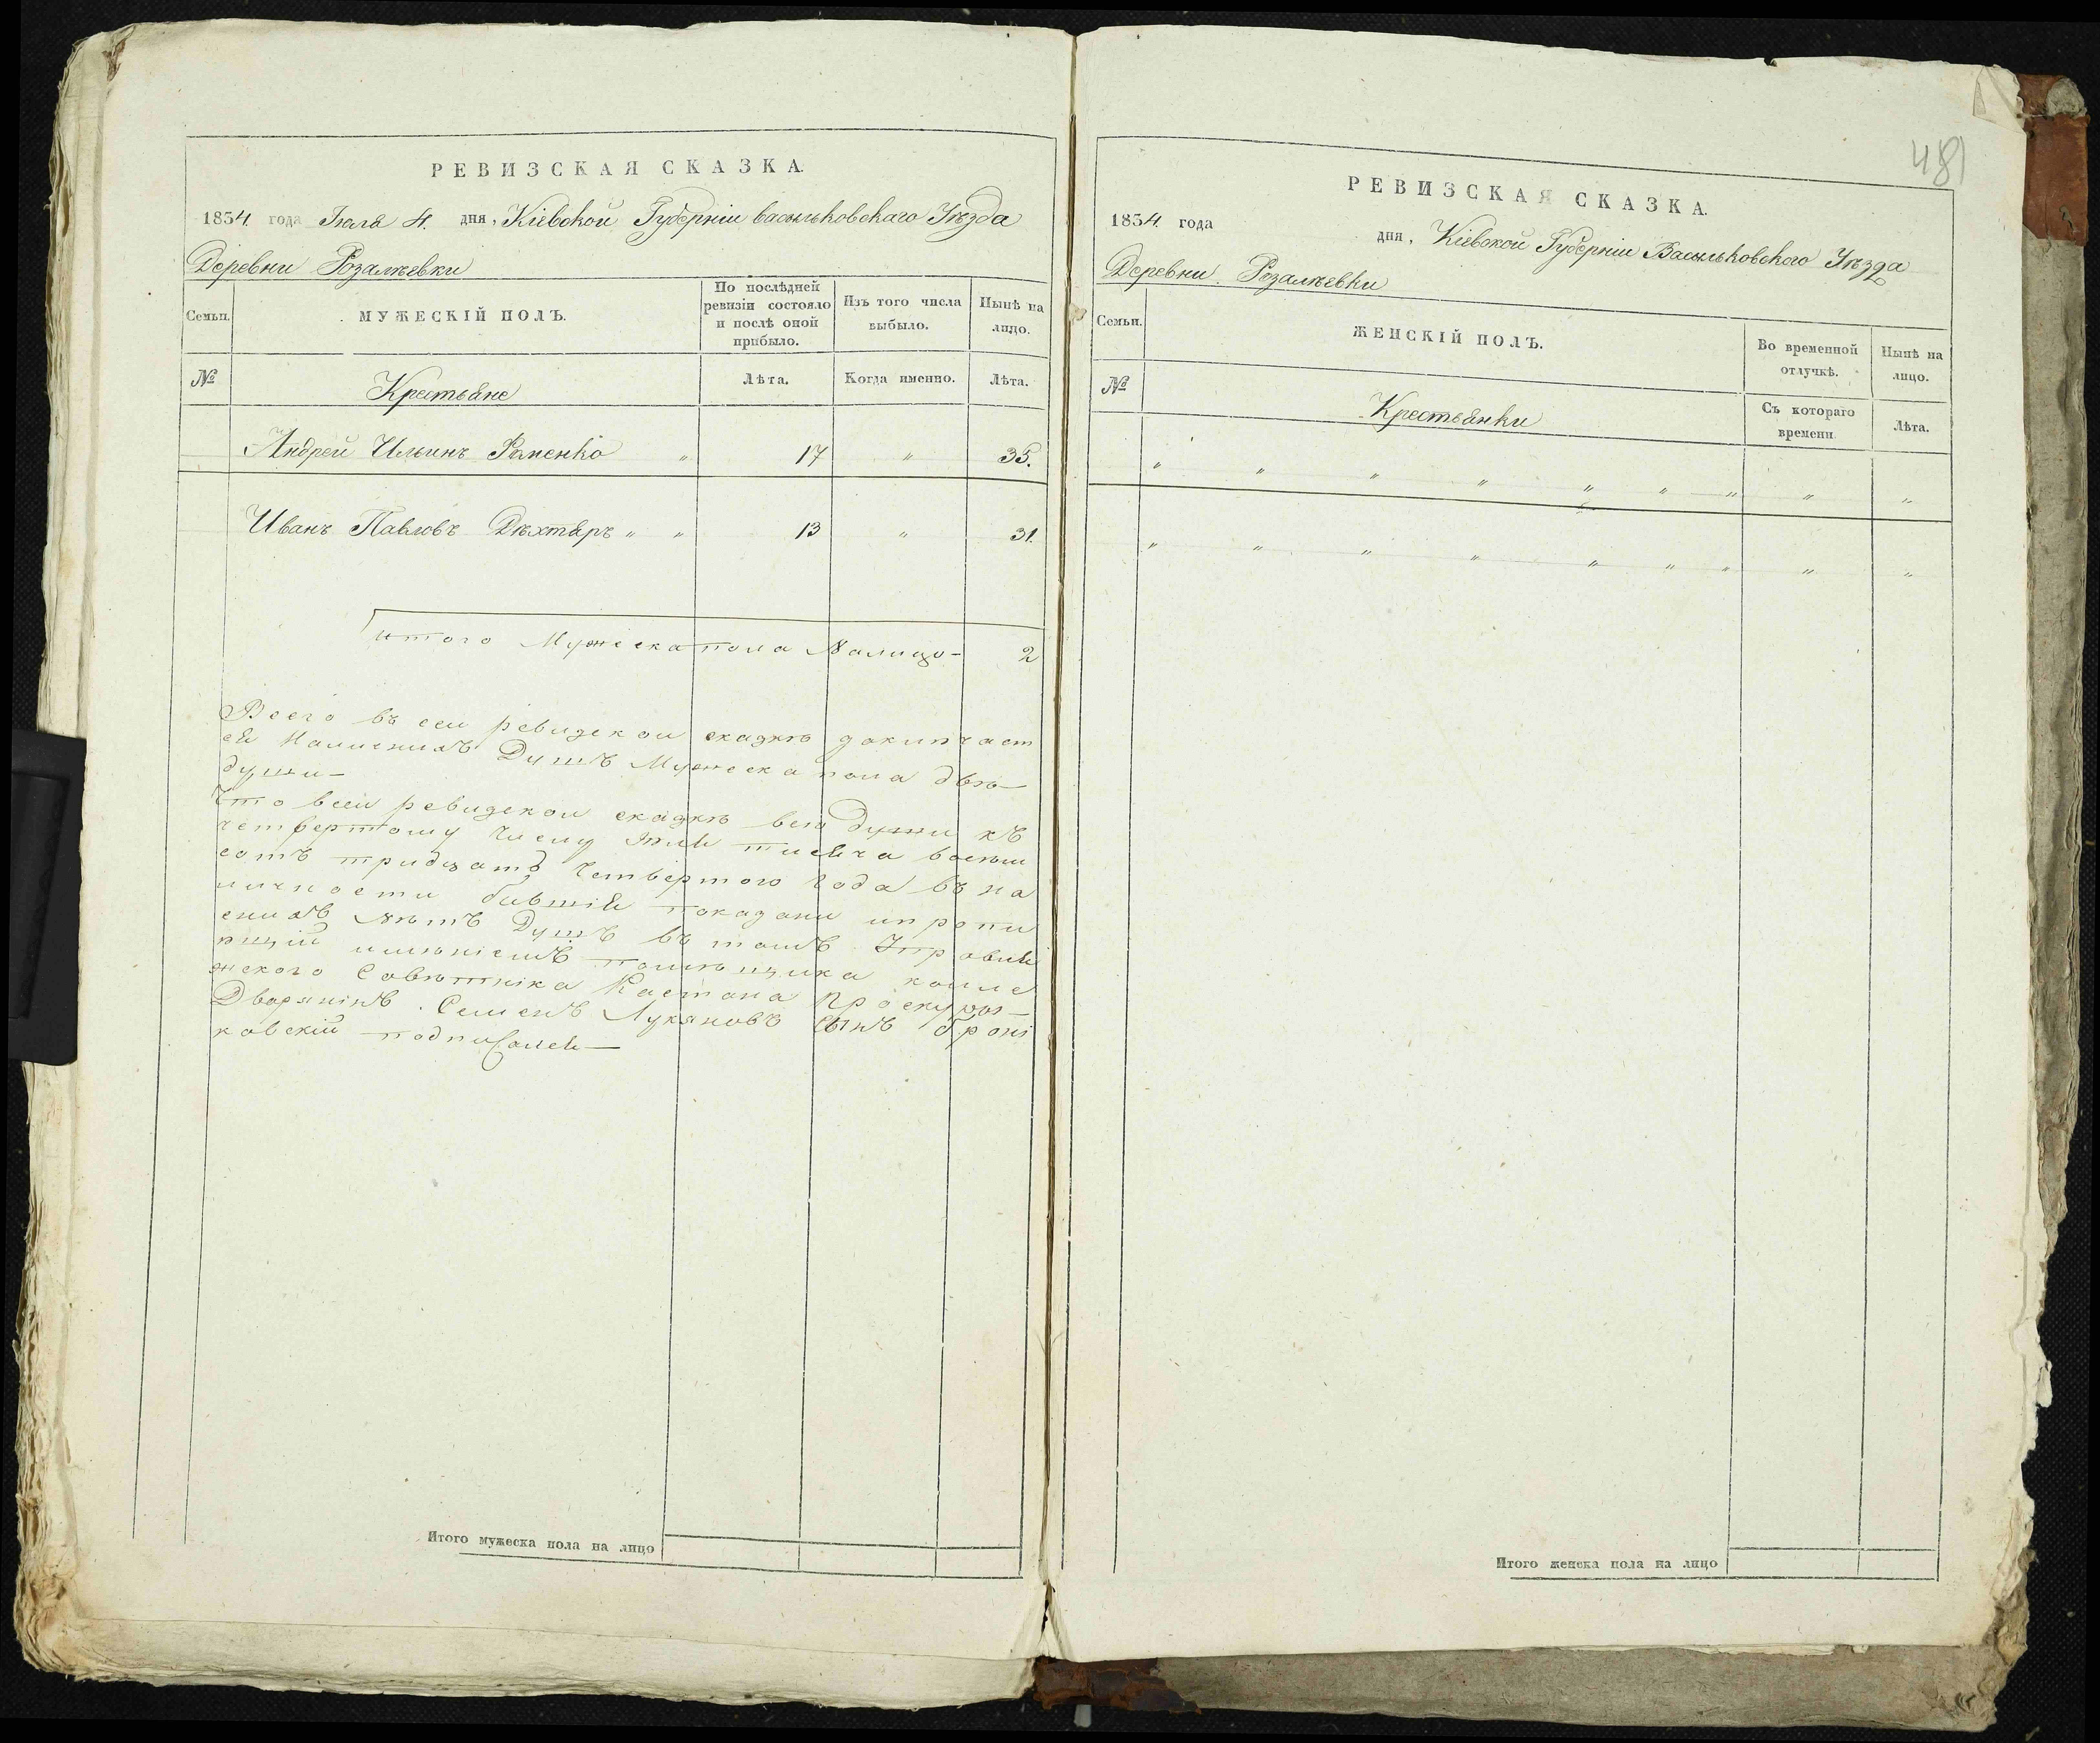 РЕВИЗСКАЯ СКАЗКА.
1834. года Іюля 4. дня, Кіевской Губерніи васильковскаго Уѣзда
Деревни Розалѣевки
Семьи.
МУЖЕСКІЙ ПОЛЪ.
По послѣдней ревизіи состояло и послѣ оной прибыло.
Изъ того числа выбыло.
Нынѣ на лицо.
№
Крестьяне
Лѣта.
Когда именно.
Лѣта.
Андрей Ильинъ Раменко " 17 " 35.
Иванъ Павловъ Дѣхтяръ " " 13 " 31.
итого Мужеска пола Налицо - 2
Всего въ сеи ревизскои сказкѣ заключает
ся Наличнихъ Душъ Мужеска пола двѣ
души -
Что всеи ревизскои сказкѣ всѣ Души къ
четвертому Числу Юля тисяча восѣм
сотъ тридцатъ Четвертого года въ на
личности бившія показани ипропи
снихъ нѣтъ Душъ въ томъ Управля
ющій имѣніемъ помѣщика колле
жского Совѣтника Каетана Проскуры -
Дворянінъ Семенъ Лукяновъ Сынъ Броні
ковскій подписался -
Итого мужеска пола на лицо
481
РЕВИЗСКАЯ СКАЗКА.
1834. года дня, Кіевской Губерніи Васильковского Уѣзда
Деревни Розалѣевки
Семьи.
ЖЕНСКІЙ ПОЛЪ.
Во временной отлучкѣ.
Нынѣ на лицо.
№
Крестьянки
Съ котораго времени.
Лѣта.
" " " " " " " " "
" " " " " " " " "
Итого женска пола на лицо